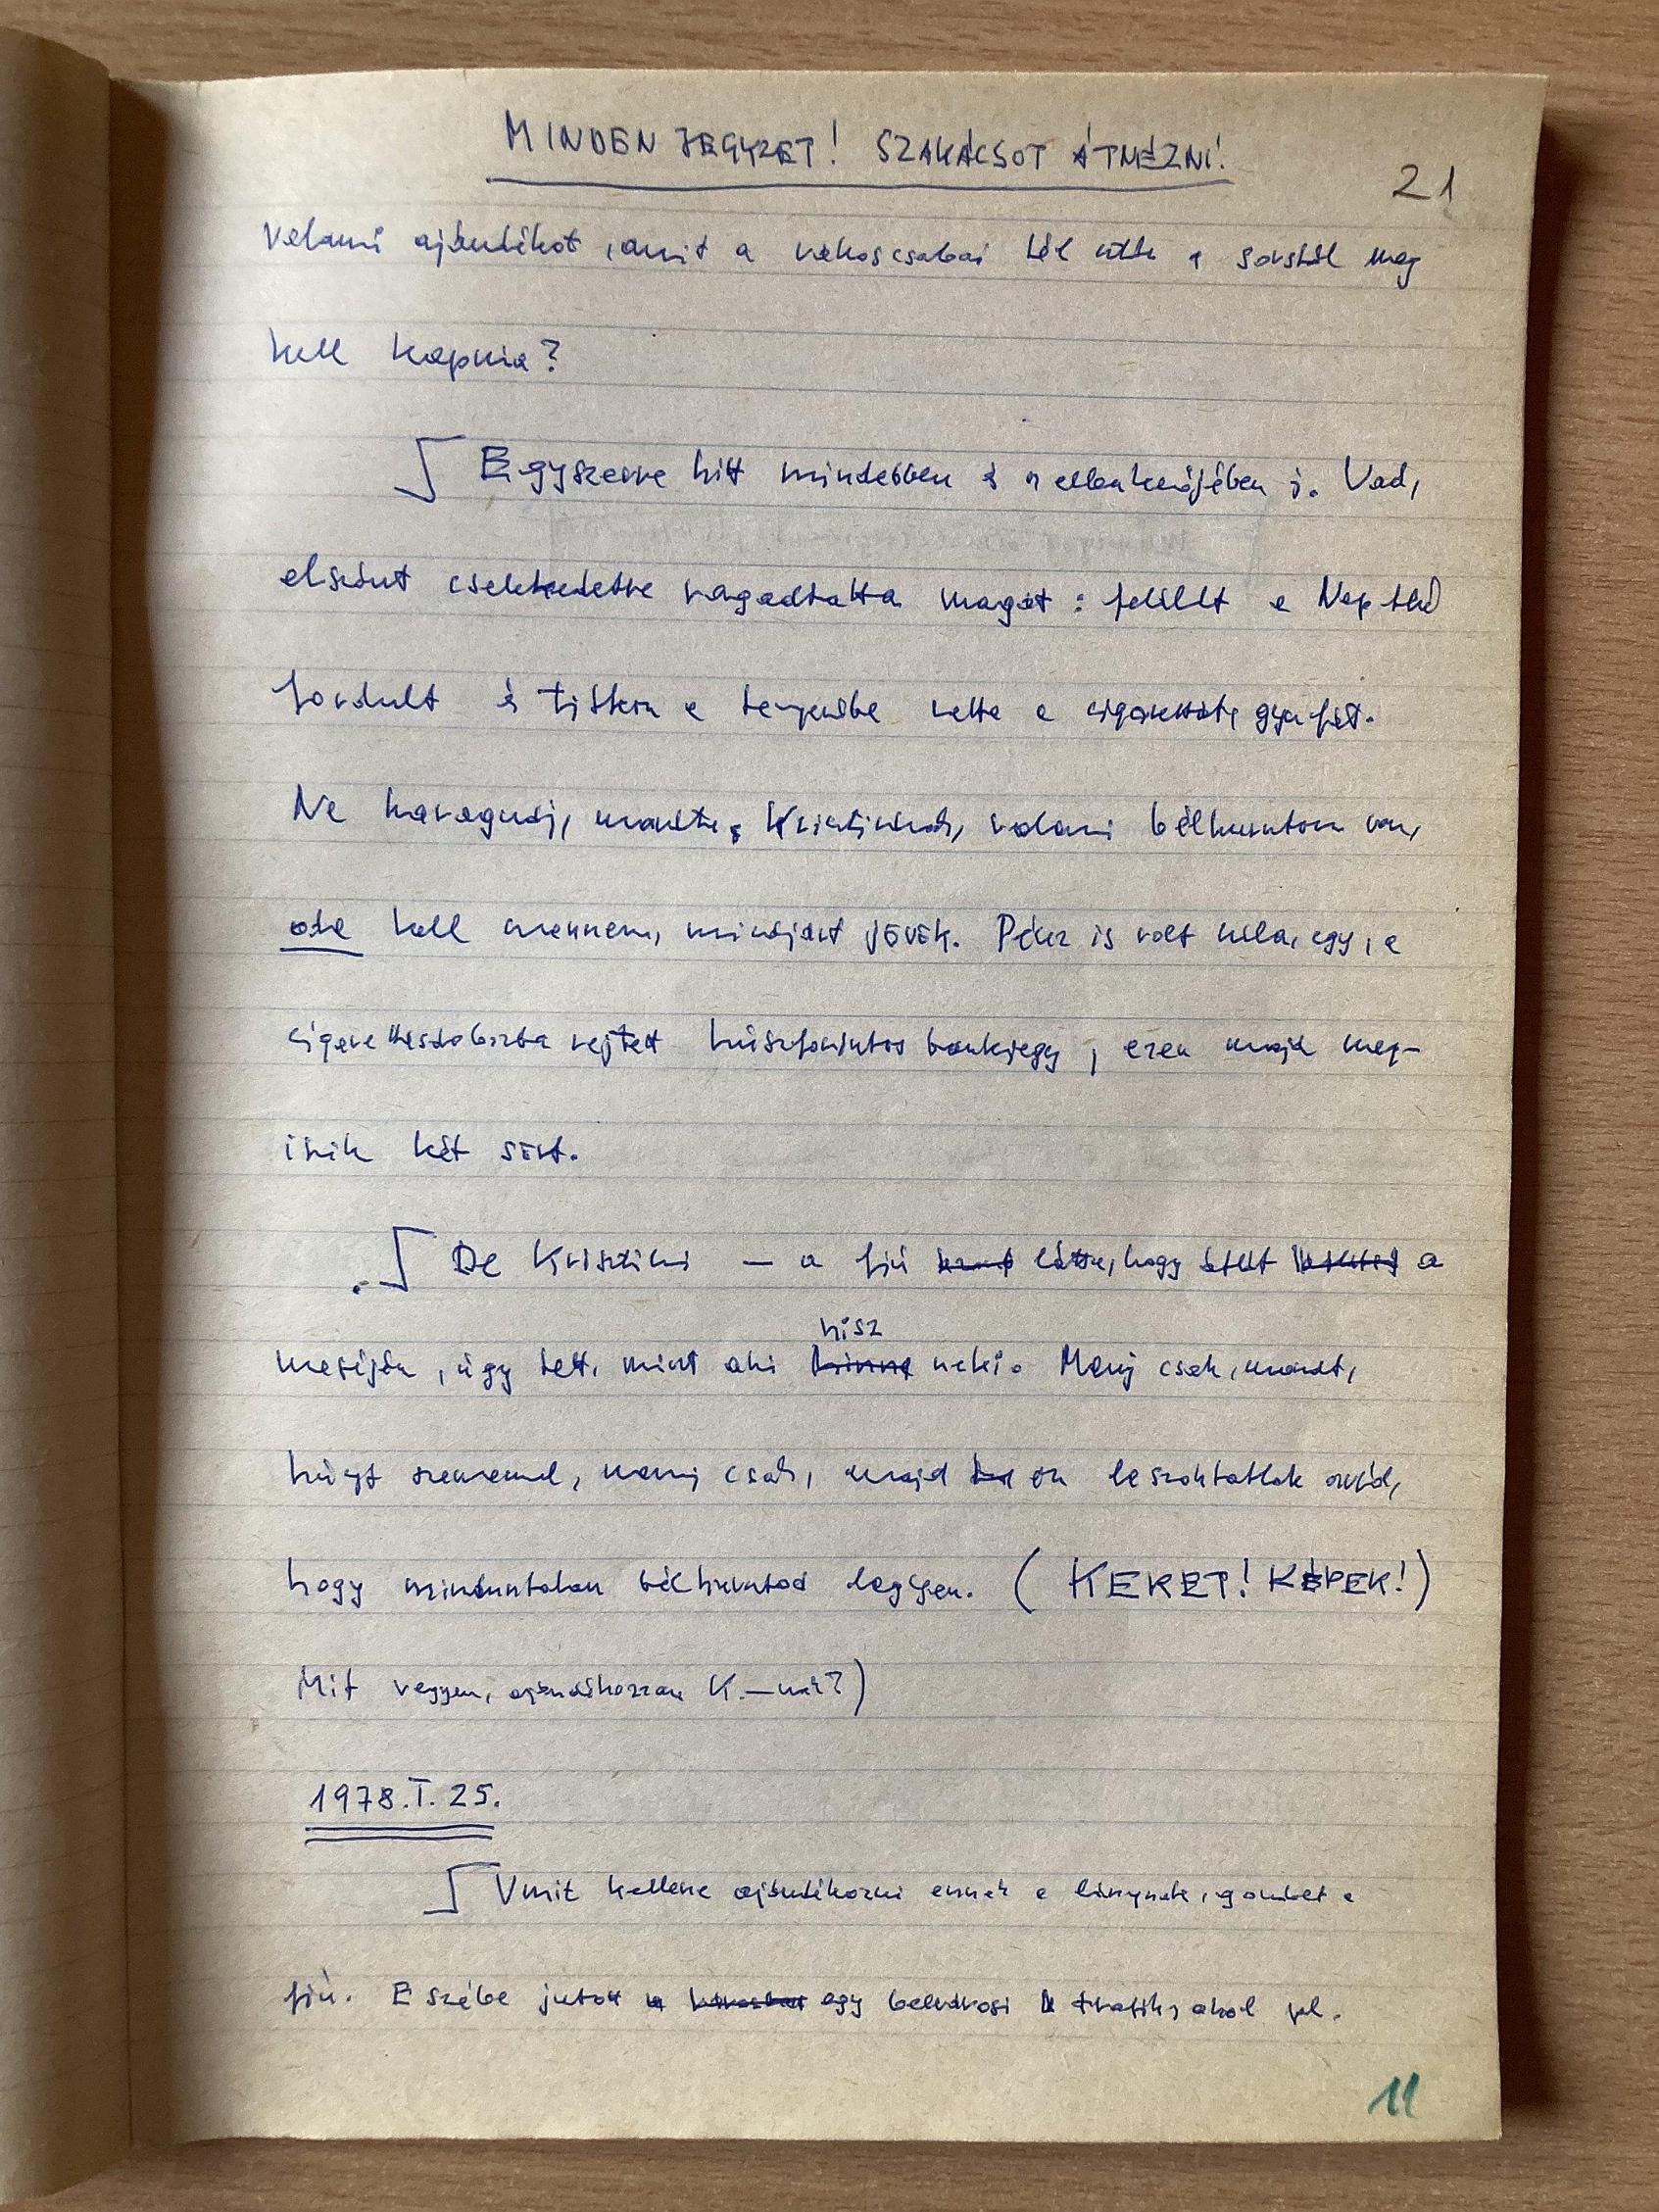 MINDEN JEGYZET! SZAKÁCSOT ÁTNÉZNI!
21
valami ajándékot, amit a rákoscsabai tél után a sorstól meg
kell kapnia?
Egyszerre hitt mindebben s az ellenkezőjében is. Vad,
elszánt cselekedetre ragadtatta magát: felült a Nap felé
fordult és titkon a tenyerébe vette a cigarettát, gyufát.
Ne haragudj, mondta Krisztinek, valami bélhurutom van,
oda kell mennem, mindjárt jövök. Pénz is volt nála, egy, a
cigarettásdobozba rejtett húszforintos bankjegy, ezen majd meg-
iszik két sört.
De Kriszti – a fiú látta, hogy átlát a
hisz
meséjén, úgy tett, mint aki neki. Menj csak, mondta,
menj csak, majd én leszoktatlak arról,
hogy minduntalan bélhurutod legyen. (KERET! KÉPEK!)
Mit vegyen, ajándékozzon K.-nak?)
1978. I. 25.
Vmit kellene ajándékozni ennek a lánynak, gondolta a
fiú. Eszébe jutott egy belvárosi trafik, ahol pl.
11